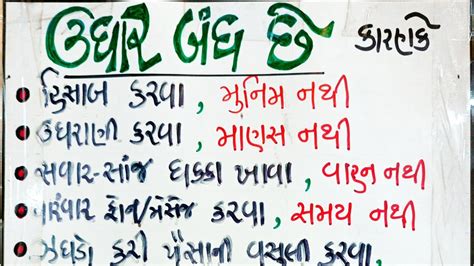 ઉધાર બંધ છે કારણકે
હિસાબ કરવા , મુનિમ નથી
ઉઘરાણી કરવા , માણસ નથી
સવાર-સાંજ ધક્કા ખાવા , વાહન નથી
વારંવાર ફોન/મેસેજ કરવા , સમય નથી
ઝઘડો કરી પૈસાની વસુલી કરવા ,